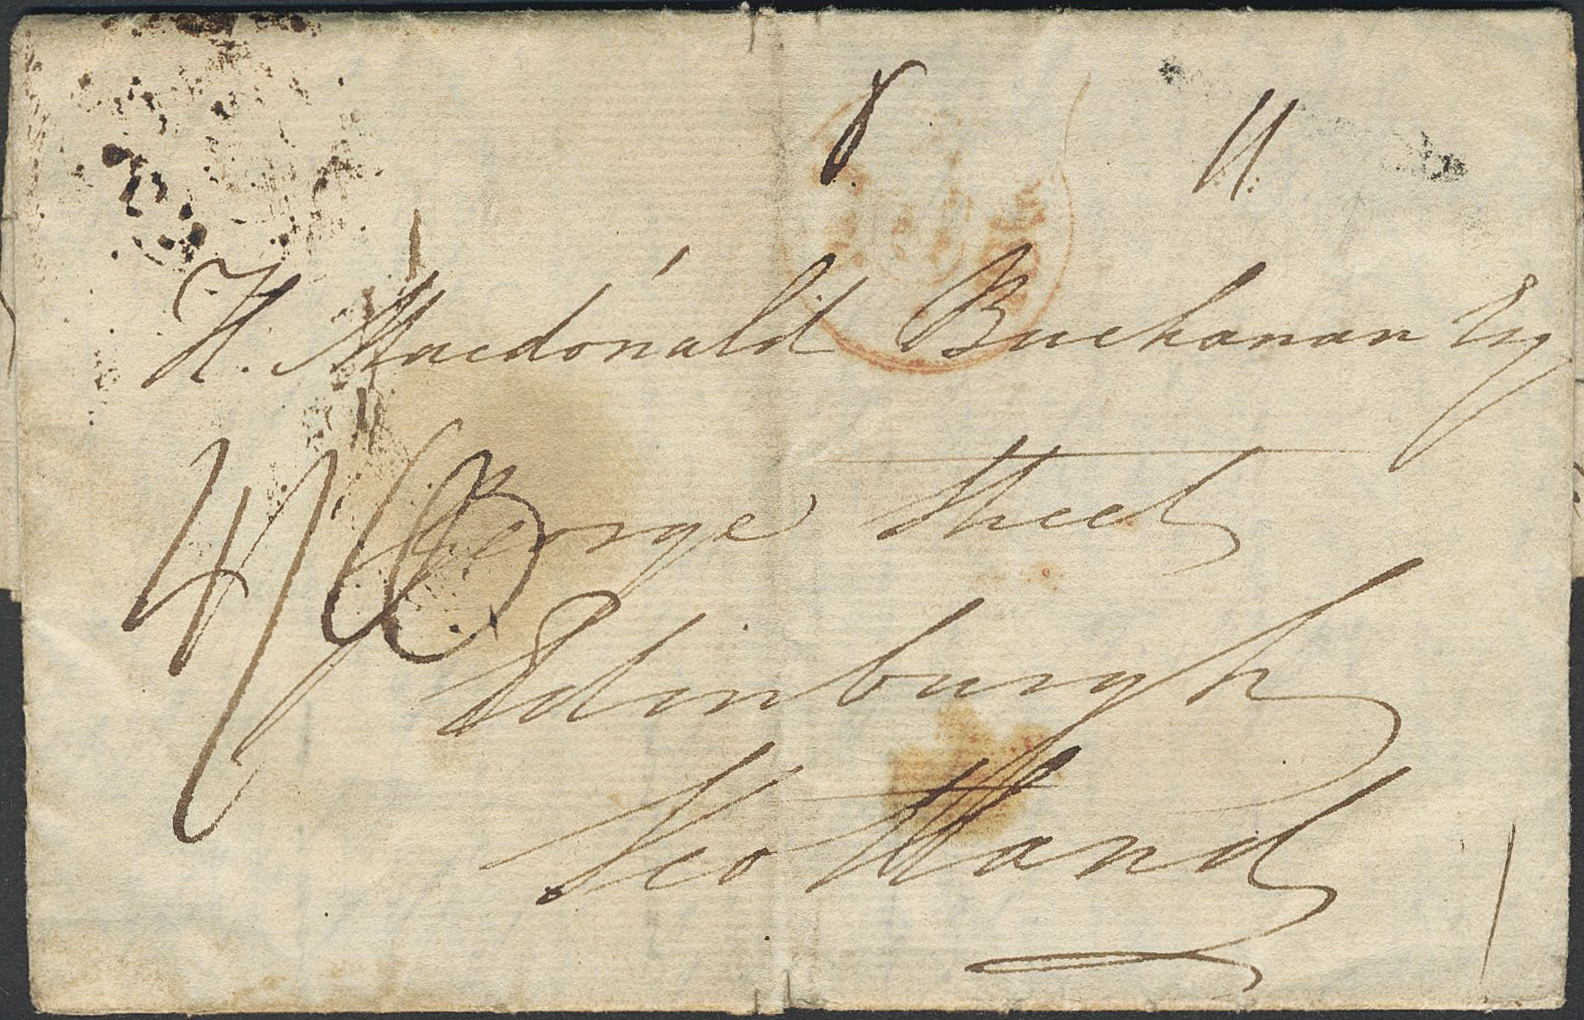 8 11
H. Macdonald Buchanan Esq
George Street
Edinburgh
Scotland